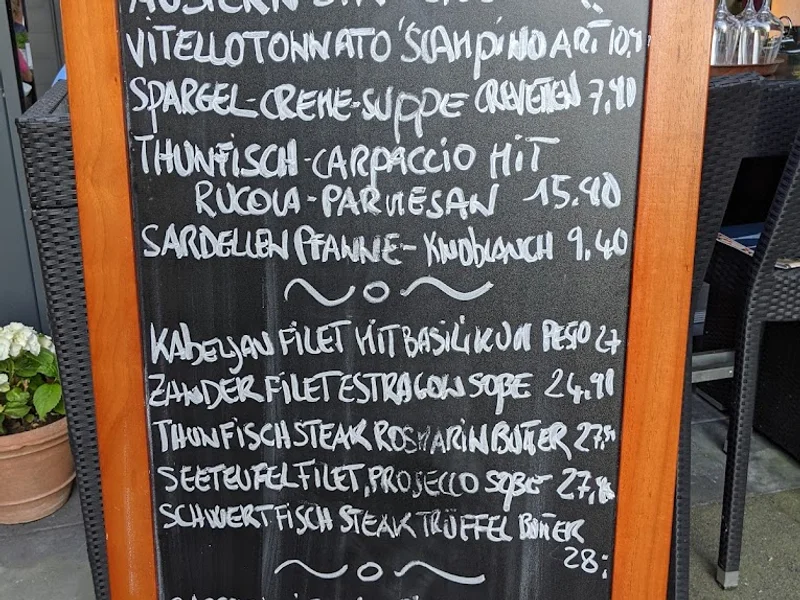 VITELLOTONNATO SCAMPINO ART 10,9
SPARGEL-CREME-SUPPE CREVETTEN 7,90
THUNFISCH-CARPACCIO MIT
RUCOLA-PARMESAN 15.90
SARDELLEN PFANNE- KNOBLAUCH 9,40
KABELJAU FILET MIT BASILIKUM PESTO 27
ZANDER FILET ESTRAGON SOßE 24,90
THUNFISCH STEAK ROSMARIN BUTTER 27,90
SEETEUFEL FILET, PROSECCO SOßE 27,
SCHWERTFISCH STEAK TRÜFFEL BUTTER
28;